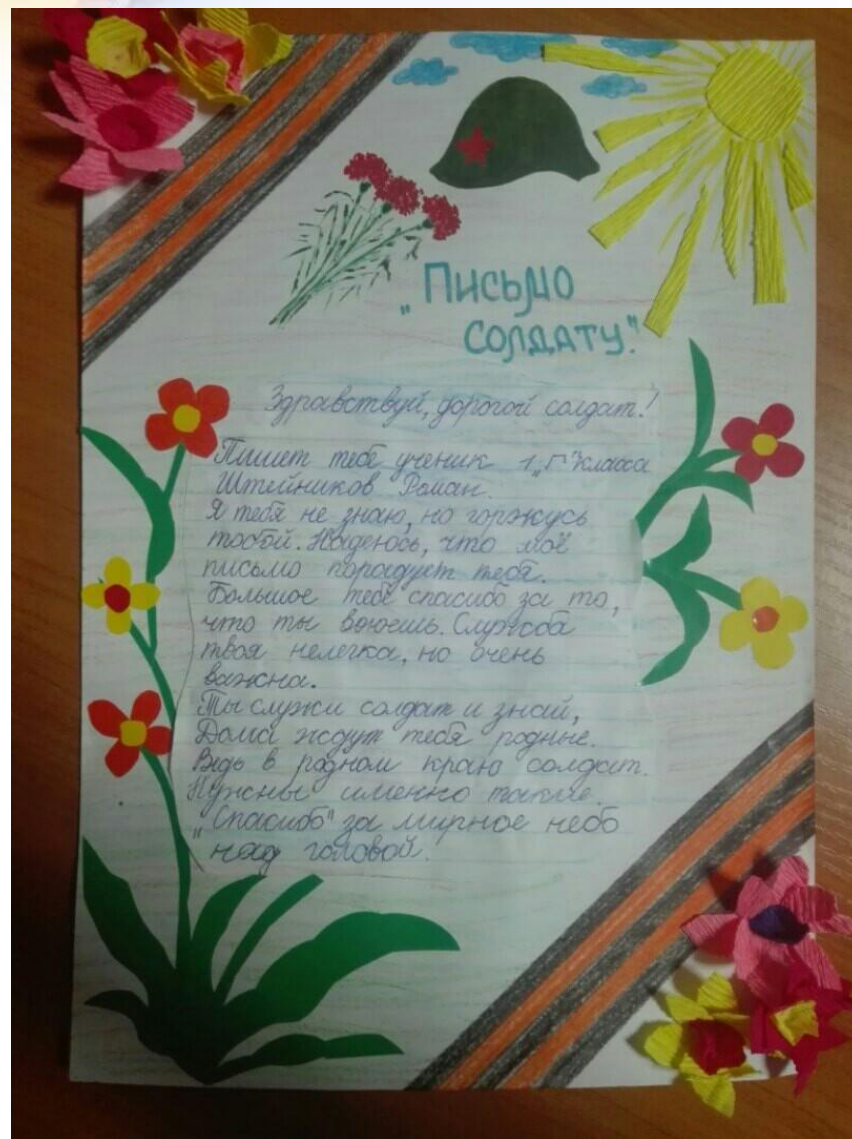 „Письмо
солдату."
Здравствуй, дорогой солдат!
Пишет тебе ученик 1„Г" класса
Штейников Роман.
Я тебя не знаю, но горжусь
тобой. Надеюсь, что моё
письмо порадует тебя.
Большое тебе спасибо за то,
что ты воюешь. Служба
твоя нелегка, но очень
важна.
Ты служи солдат и знай,
Дома ждут тебя родные.
Ведь в родном краю солдат.
Нужны именно такие.
„Спасибо" за мирное небо
над головой.